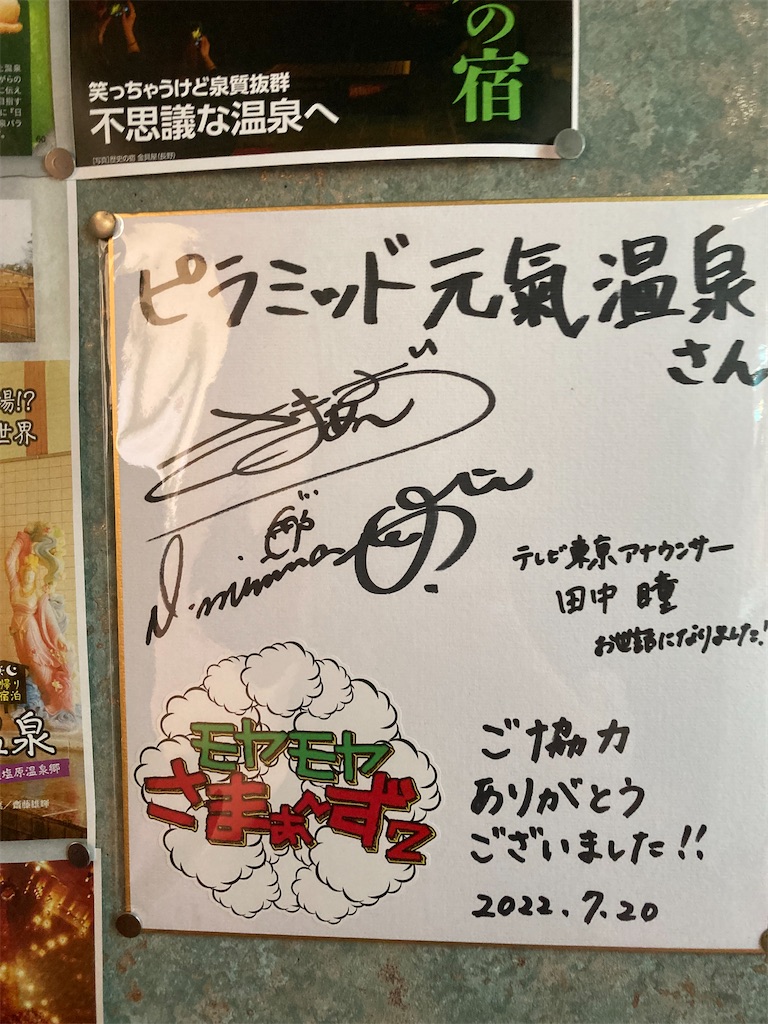 の宿
笑っちゃうけど泉質抜群
不思議な温泉へ
[写真]歴史の宿 金具屋(長野)
60
ピラミッド元氣温泉
さん
さまぁ〜ず
テレビ東京アナウンサー
田中 瞳
お世話になりました!
モヤモヤ
さまぁ〜ず2
ご協力
ありがとう
ございました!!
2022.7.20
場!?
世界
帰り
宿泊
泉
塩原温泉郷
／齋藤雄輝